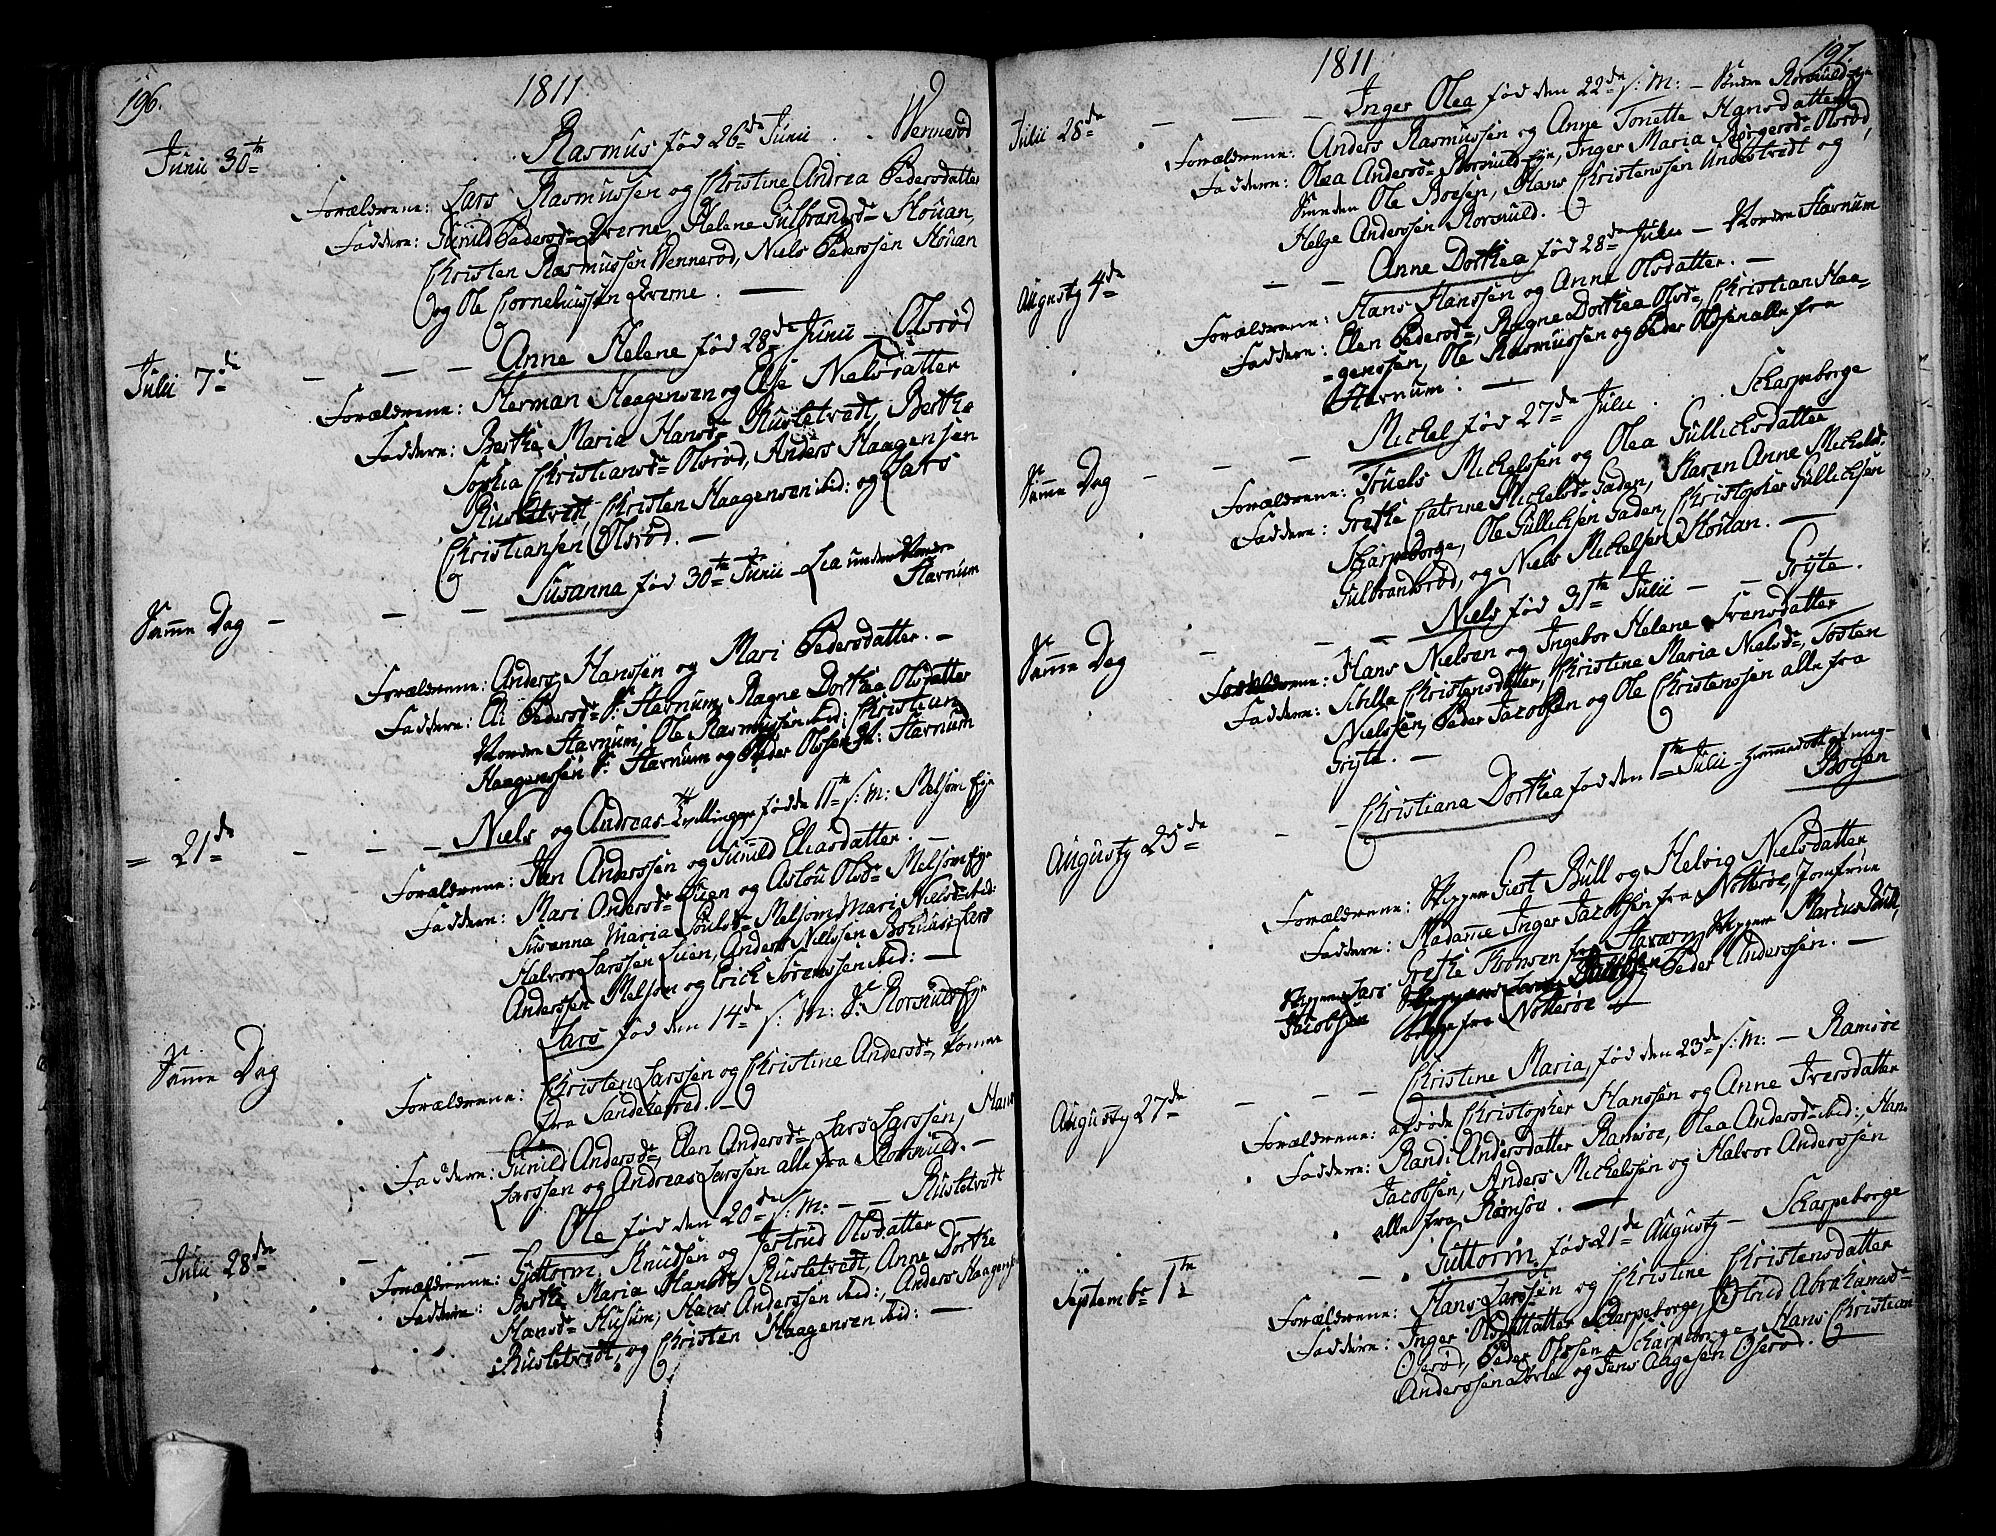 196.
1811
Junii 30te
Rasmus fød 26de Junii . - Wennerød
Forældrene: Lars Rasmussen og Christine Andrea Pedersdatter
Faddere: Gunild Pedersd= Qverne, Helene Gulbrandsd= Houan,
Christen Rasmussen Wennerød, Niels Pederssen Houan
og Ole Corneliussen Qverne. —
Julii 7de — — — — Anne Helene fød 28de Junii — Olsrød
Forældrene: Herman Haagensen og Else Nielsdatter
Faddere: Berthe Maria Hansd= Rusletvedt, Berthe
Sophia Christiansd= Olsrød, Anders Haagensen
Rusletvedt, Christen Haagensen ibid: og Lars
Christiansen Olsrød. —
Susanna fød 30te Junii — Lia under Nordre
Havnum
Samme Dag — — — —
Forældrene: Anders Hanssen og Mari Pedersdatter. —
Faddere: Eli Pedersd= S: Havnum, Ragne Dorthea Olsdatter
Nordre Havnum, Ole Rasmussen ibid: Christian
Haagenssen S: Havnum og Peder Olssen N: Havnum
= 21de — — — Niels og Andreas Tvillinger fødde 11te s: M: Melsom Eje
Forældrene: Jan Anderssen og Gunild Eliasdatter. —
Faddere: Mari Andersd= Luen og Aslou Olsd= Melsom Eje
Susanna Maria Poulsd= Melsom, Mari Nielsd= ibid:
Halvor Larssen Luen, Anders Nielssen Bohuus, Lars
Anderssen Melsom og Erich Sørenssen ibid: —
Samme Dag
Lars fød den 14de s: M: S: Rorsuuld Eje
Forældrene: Christen Larssen og Christine Andersd=, komne
fra Sandeherred. —
Faddere: Gunild Andersd=, Elen Andersd=, Lars Larssen, Hans
Larssen og Andreas Larssen alle fra Rorsuuld. —
Julii 28de — — Ole fød den 20de s: M: — — Rusletvedt
Forældrene: Guttorm Knudsen og Jertrud Olsdatter —
Faddere: Berthe Maria Hansd= Rusletvedt, Anne Dorthe
Hansd= Husum, Hans Anderssen ibid:, Anders Haagensen
Rusletvedt, og Christen Haagensen ibid: —
197.
1811
Julii 28de — — — Inger Olea fød den 22de s: M: — Søndre Rorsuuld Eje
Forældrene: Anders Rasmussen og Anne Tonette Hansdatter
Faddere: Olea Andersd= Rorsuuld Eje, Inger Maria Børgersd= Olsrød,
Smeden Ole Boesen, Hans Christenssen Undestvedt og
Helge Anderssen Rorsuuld.
Augusty 4de — — Anne Dorthea fød 28de Julii — Nordre Havnum
Forældrene: Hans Hanssen og Anne Olsdatter. —
Faddere: Elen Pedersd=, Ragne Dorthea Olsd=, Christian Haa-
=genssen, Ole Rasmussen og Peder Olssen alle fra
Havnum. —
Samme Dag — — — Michel fød 27de Julii . . . Scharpeborge
Forældrene: Truels Michelssen og Olea Gullichsdatter
Faddere: Grethe Catrine Michelsd= Gaden, Karen Anne Michelsd=
Scharpeborge, Ole Gullichsen Gaden, Christopher Gullichsen
Gulbrandsrød, og Niels Michelsen Houan. —
Samme Dag — — — Niels fød 31te Julii — — Gryte.
Forældrene: Hans Nielsen og Ingebor Helene Fransdatter
Faddere: Sibille Christensdatter, Christine Maria Nielsd=, Tosten
Nielssen, Peder Jacobsen og Ole Christenssen alle fra
Gryte. —
Christiana Dorthea fød den 1te Julii hjemmedøbt
Bogen
Augusty 25de — —
Forældrene: Skipper Giert Bull og Helvig Nielsdatter
Faddere: Madame Inger Jacobsen fra Nøtterøe, Jomfrue
Grethe Thonsen fra Staværn, Skipper Marcus Bull,
Skipper Lars Jacobsen Peder Anderssen. —
fra Nøtterøe
Augusty 27de — — — Christine Maria, fød den 23de s: M: — Ramsøe
Forældrene: afdøde Christopher Hanssen og Anne Iversdatter
Faddere: Randi Andersdatter Ramsøe, Olea Andersd= ibid:, Hans
Jacobsen, Anders Michelssen og Halvor Anderssen
alle fra Ramsøe. —
Septembr 1te — Guttorm, fød 21de Augusty — Scharpeborge
Forældrene: Hans Larssen og Christine Christensdatter
Faddere: Inger Olsdatter Scharpeborge, Astrid Abrahamsd=
Oserød, Peder Olssen Scharpeborge, Hans Christian
Anderssen og Jens Aagesen Oserød. —